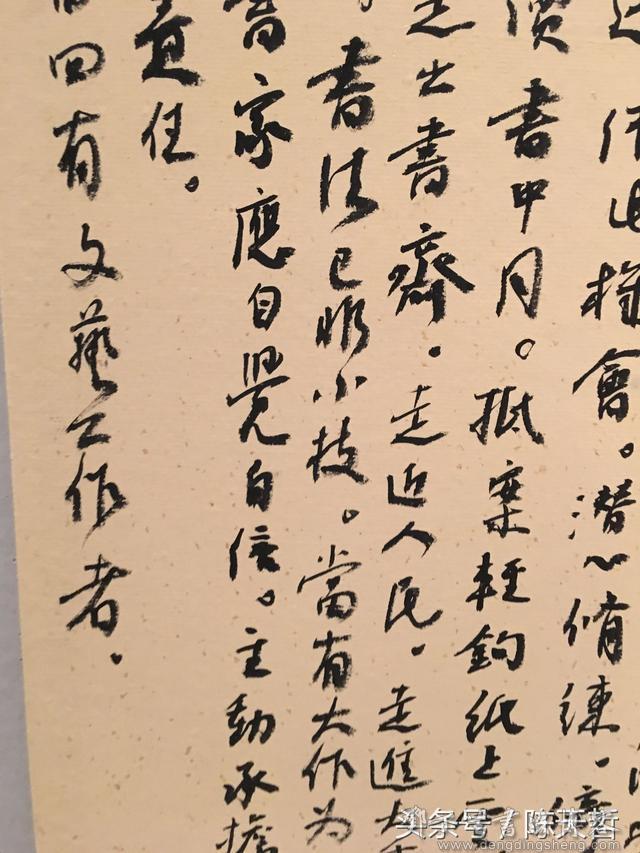 此機會。潛心脩練，
書中月。抵棄輕鈎紙上
走出書齋。走近人民。走進大
書法已非小技。當有大作為
書家應自覺自信。主動承擔
責任。
四有文藝工作者。
头条号
www.dengdingsheng.com